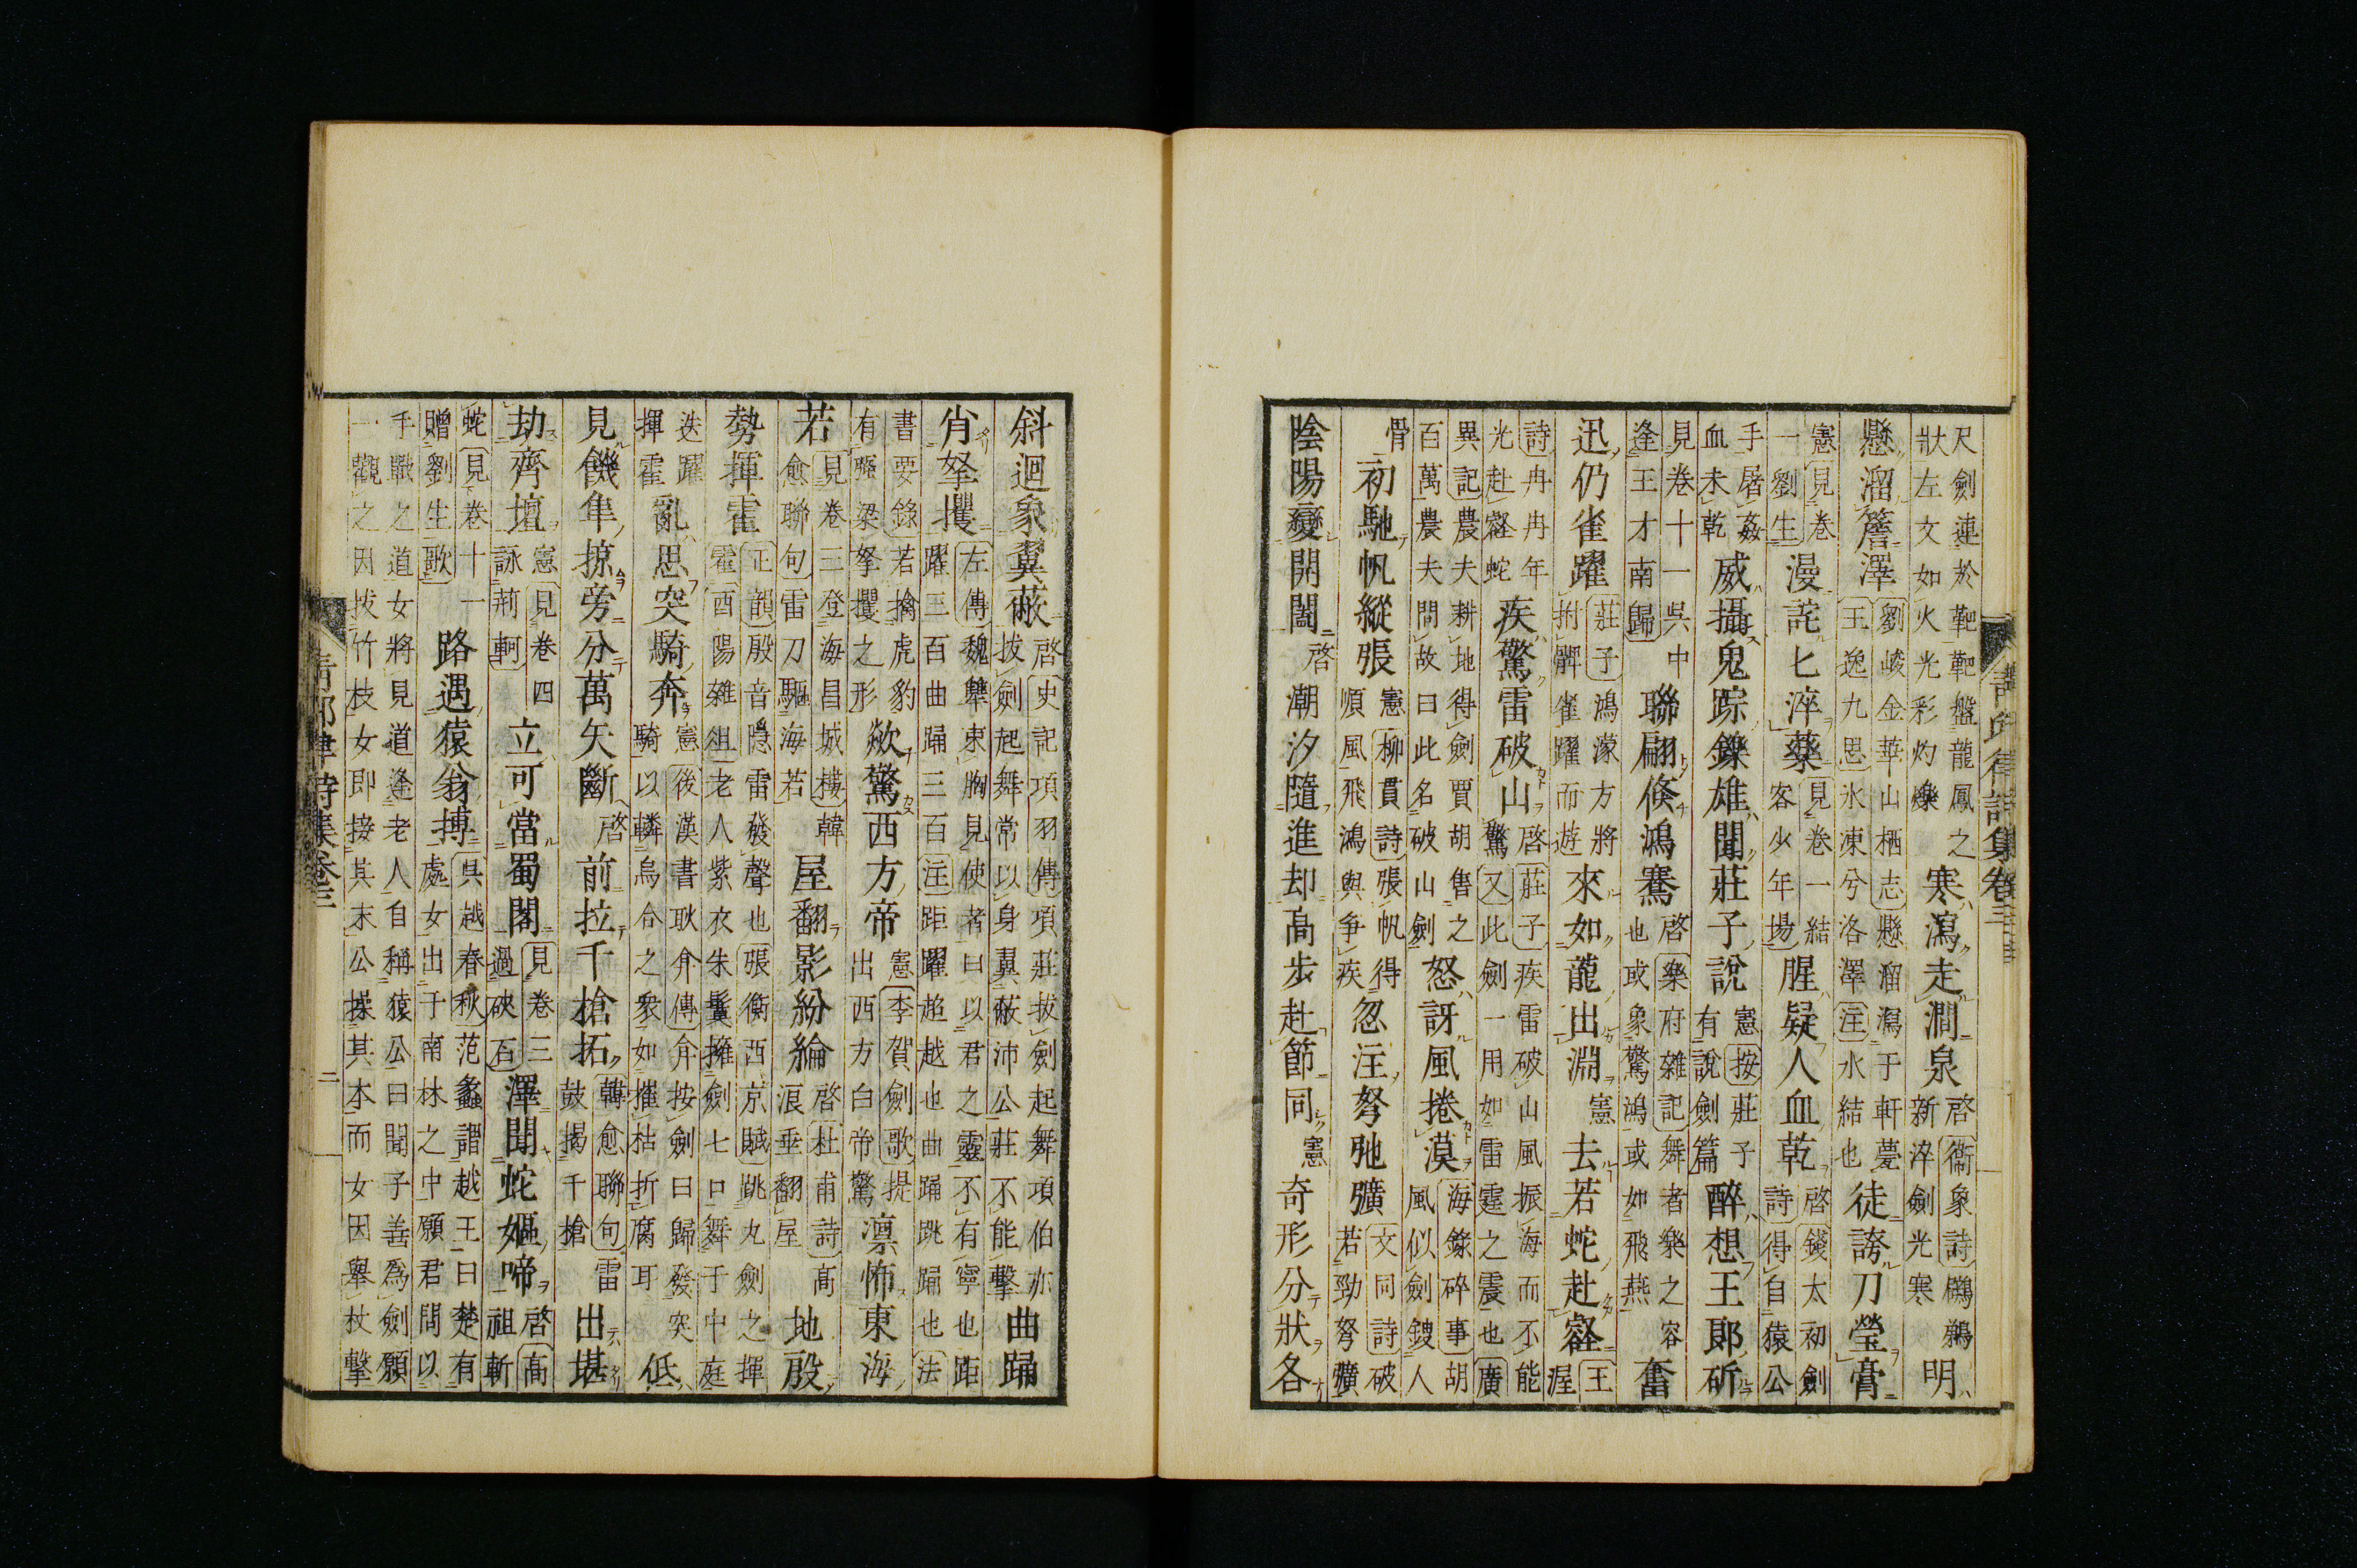 青邱律詩集卷三
尺劍連於靶靶盤龍鳳之狀左文如火光彩灼爍寒瀉走澗泉啓衞象詩鸊鵜新淬劍光寒明
懸溜簷澤劉峻金華山栖志懸溜瀉于軒甍王逸九思氷凍兮洛澤注氷結也徒誇刀瑩膏
憲見卷一劉生漫詫匕淬藥見卷一結客少年場腥疑人血乾啓錢太初劍詩得自猿公
手屠姦血未乾威攝鬼踪鑠雄聞莊子說憲按莊子有說劍篇醉想王郎斫
見卷十一吳中逢王才南歸聯翩倏鴻騫啓樂府雜記舞者樂之容也或象驚鴻或如飛燕奮
迅仍雀躍莊子鴻濛方將拊髀雀躍而遊來如龍出淵憲去若蛇赴壑王渥
詩冉冉年光赴壑蛇疾驚雷破山啓莊子疾雷破山風振海而不能驚又此劍一用如雷霆之震也廣
異記農夫耕地得劍賈胡售之百萬農夫問故曰此名破山劍怒訝風捲漠海錄碎事胡風似劍鎪人
骨初馳帆縱張憲柳貫詩張帆得順風飛鴻與争疾忽注弩弛彍文同詩破若勁弩彍
陰陽變開闔啓潮汐隨進却高步赴節同憲奇形分狀各
斜迴象翼蔽啓史記項羽傳項莊拔劍起舞項伯亦拔劍起舞常以身翼蔽沛公莊不能擊曲踊
肖拏攫左傳魏犨束胸見使者曰以君之靈不有寧也距躍三百曲踊三百注距躍超越也曲踊跳踊也法
書要錄若擒虎豹有強梁拏攫之形欻驚西方帝憲李賀劍歌提出西方白帝驚凛怖東海
若見卷三登海昌城樓韓愈聯句雷刀驅海若屋翻影紛綸啓杜甫詩高浪垂翻屋地殷
勢揮霍正韻殷音隱雷發聲也張衡西京賦跳丸劍之揮霍酉陽雜俎老人紫衣朱鬒擁劍七口舞于中庭
迭躍揮霍亂思突騎奔憲後漢書耿弇傳弇按劍曰歸發突騎以轔烏合之衆如摧枯折腐耳低
見饑隼掠旁分萬矢斷啓前拉千槍拓韓愈聯句雷鼓揭千槍出堪
劫齊壇憲見卷四詠荊軻立可當蜀閣見卷三過硤石澤聞蛇嫗啼啓高祖斬
蛇見卷十一贈劉生歌路遇猿翁搏吳越春秋范蠡謂越王曰楚有處女出于南林之中願君問以
手戰之道女將見道逢老人自稱猿公曰聞子善爲劍願一觀之因拔竹枝女即接其末公操其本而女因舉杖擊
青邱律詩集卷三 二